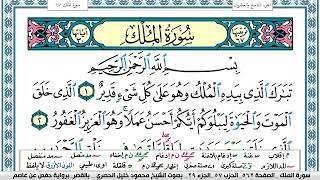 سُورَةُ الْمُلْكِ
بِسْمِ اللَّهِ الرَّحْمَٰنِ الرَّحِيمِ
تَبَارَكَ الَّذِي بِيَدِهِ الْمُلْكُ وَهُوَ عَلَىٰ كُلِّ شَيْءٍ قَدِيرٌ ١ الَّذِي خَلَقَ
الْمَوْتَ وَالْحَيَاةَ لِيَبْلُوَكُمْ أَيُّكُمْ أَحْسَنُ عَمَلًا وَهُوَ الْعَزِيزُ الْغَفُورُ ٢
سورة الملك الصفحة ٥٦٢ الجزء ٢٩ بصوت الشيخ محمود خليل الحصري بالقصر برواية حفص عن عاصم